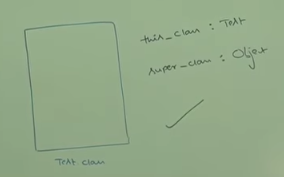 this_class : Test
super_class : Object
Test class